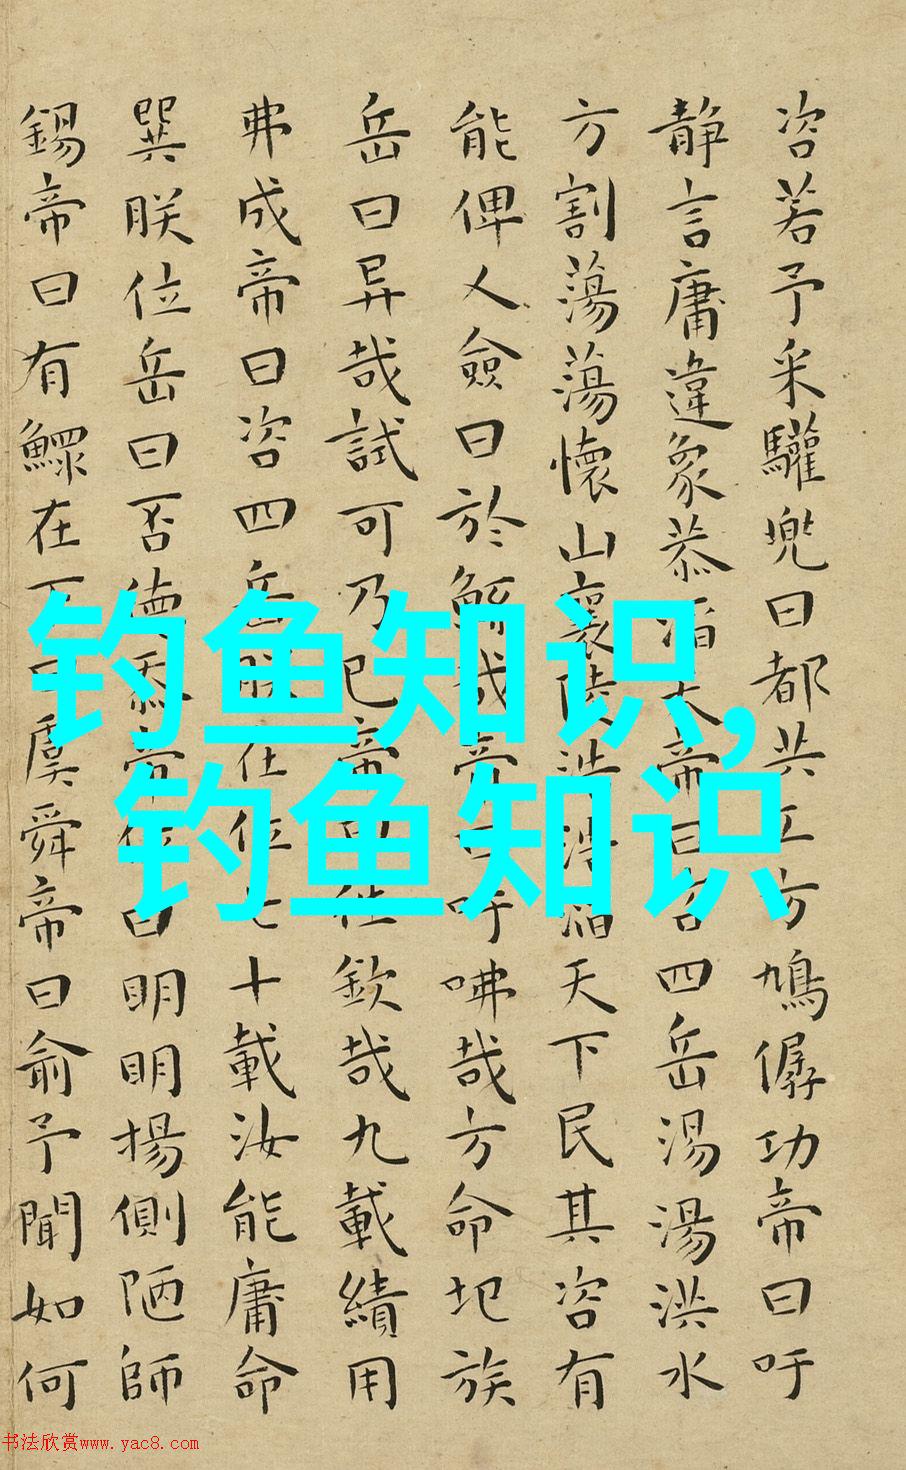 咨若予采驩兜曰都共工方鳩僝功帝曰吁
静言庸違象恭滔天帝曰咨四岳湯湯洪水
方割蕩蕩懷山襄陵浩浩滔天下民其咨有
能俾乂僉曰於鯀哉帝曰吁咈哉方命圮族
岳曰异哉試可乃已帝曰往欽哉九載績用
弗成帝曰咨四岳朕在位七十載汝能庸命
巽朕位岳曰否德忝帝位曰明明揚側陋師
錫帝曰有鰥在下曰虞舜帝曰俞予聞如何
钓鱼知识,
钓鱼知识
书法欣赏www.yac8.com